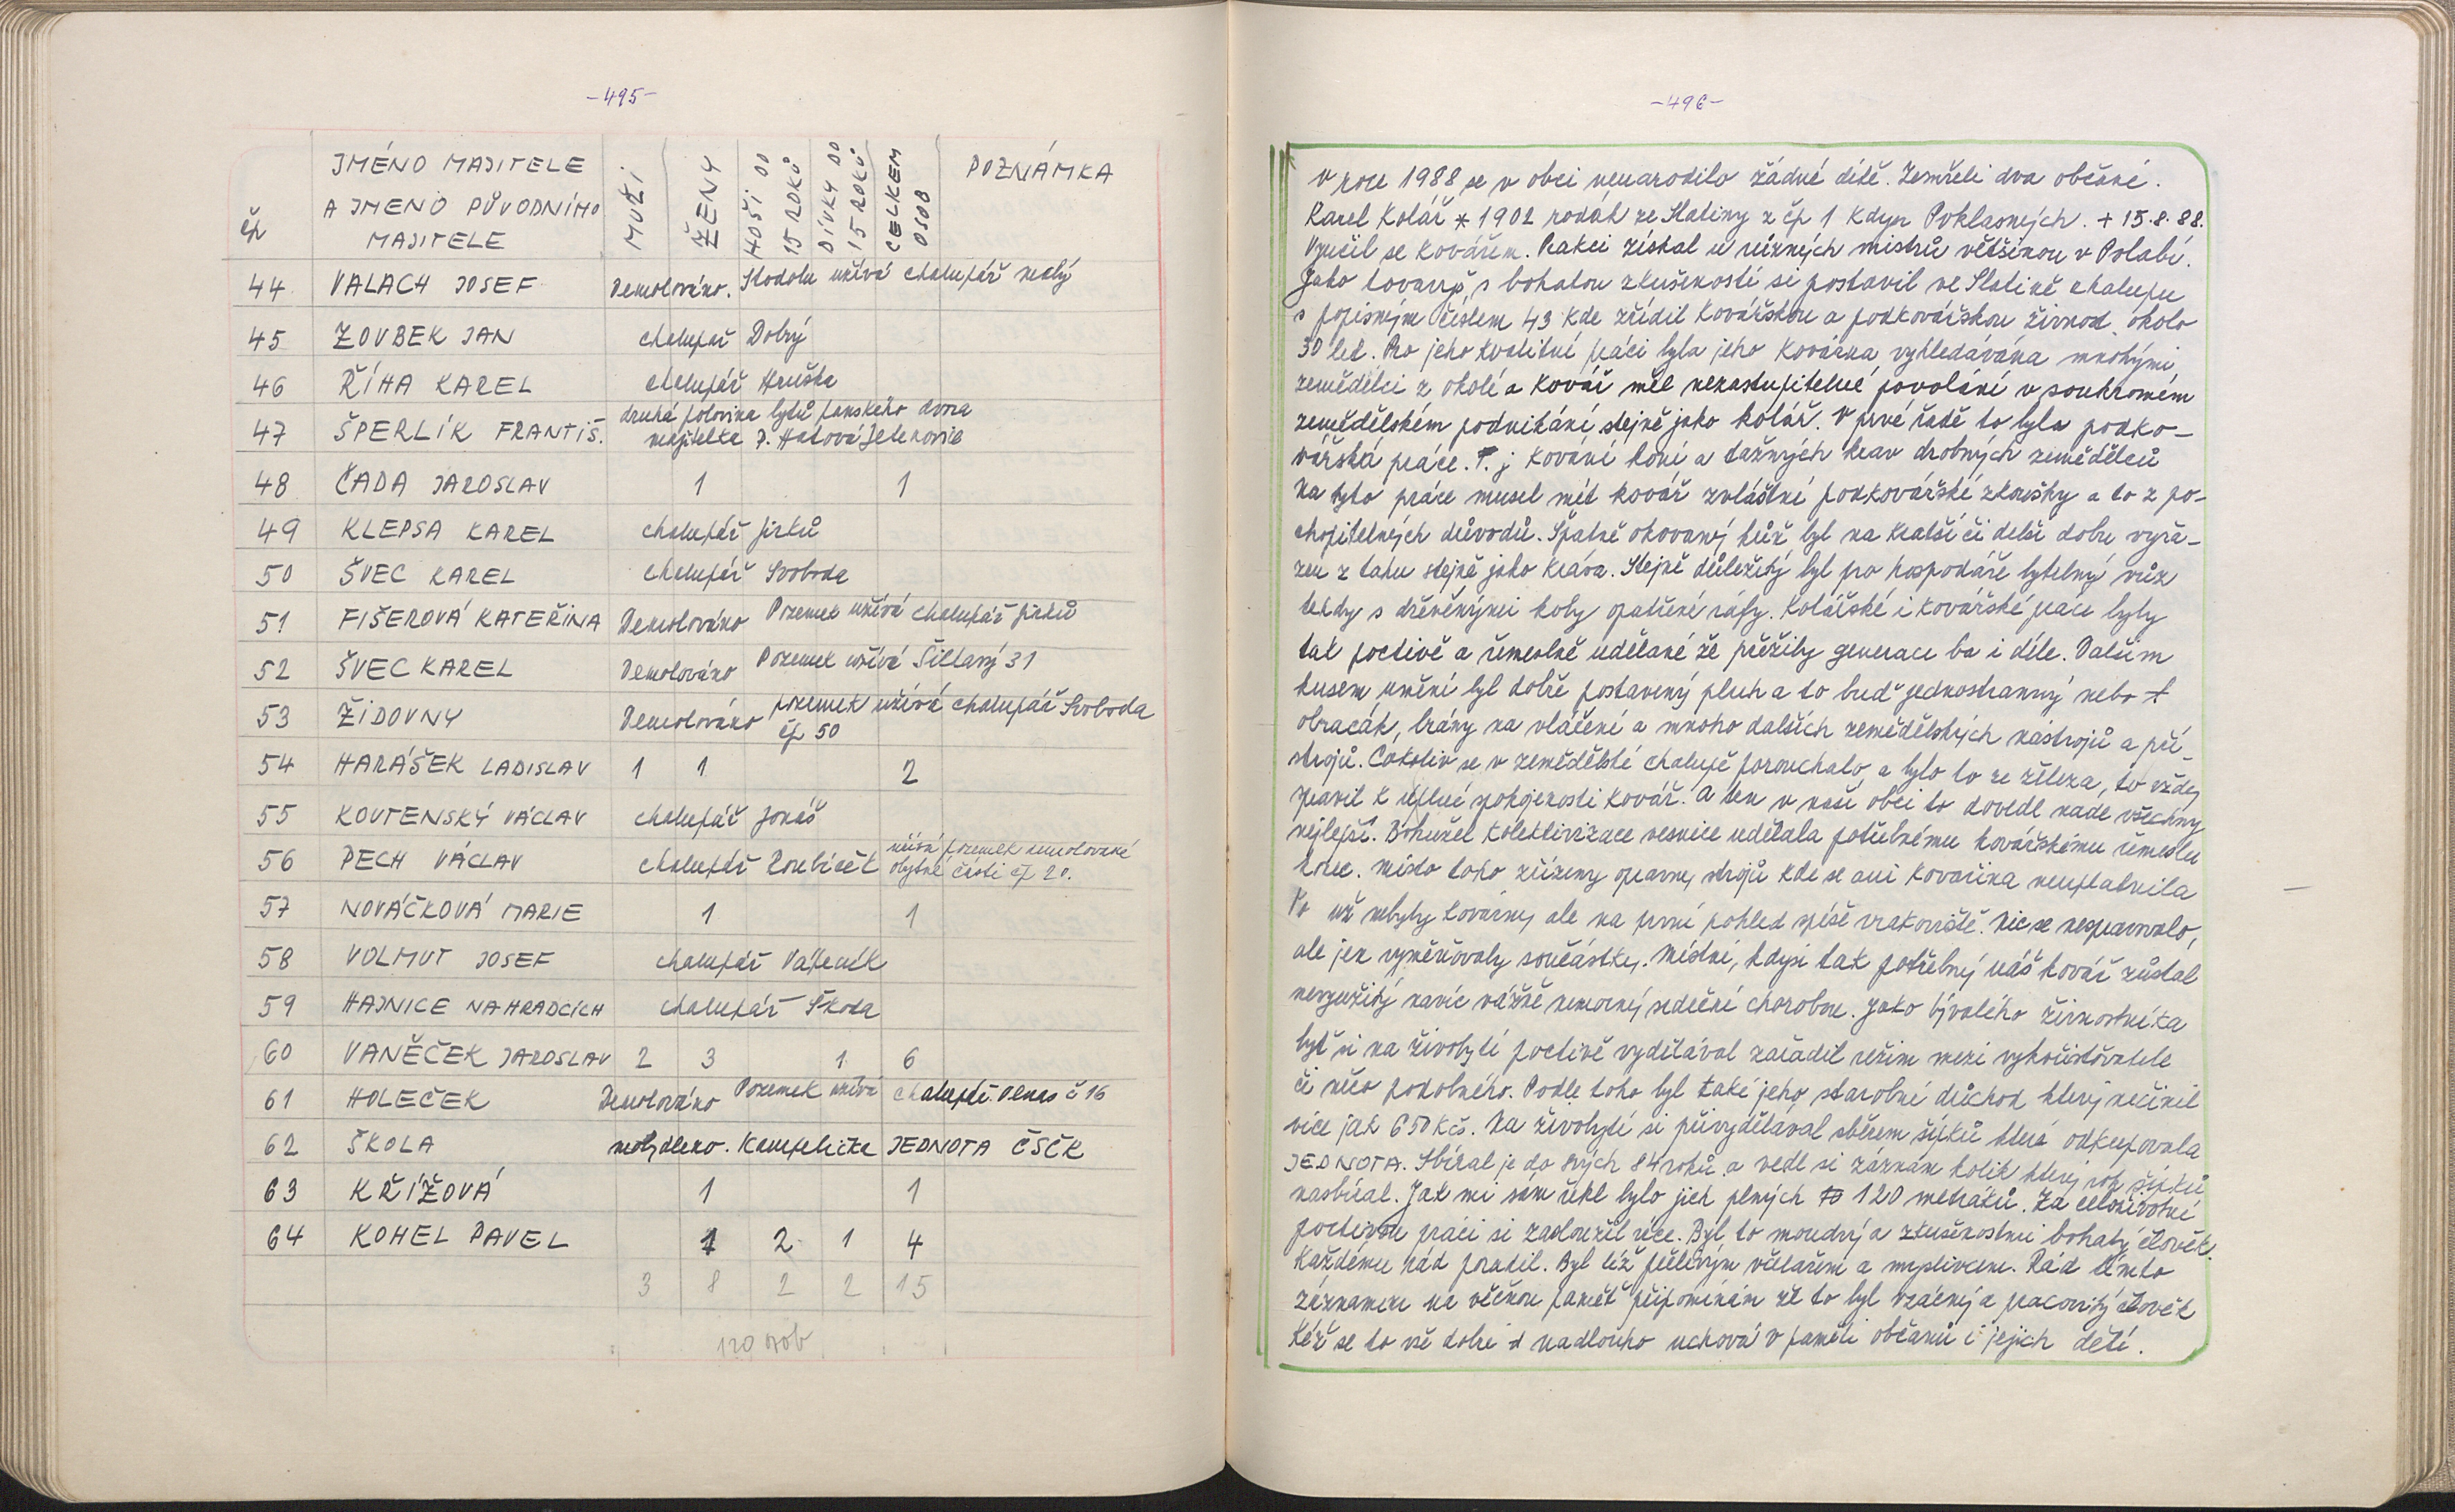 -495-
čp
JMÉNO MAJITELE
A JMENO PŮVODNÍHO
MAJITELE
MUŽI
ŽENY
HOŠI DO
15 ROKŮ
DÍVKY DO
15 ROKŮ
CELKEM
OSOB
POZNÁMKA
44 VALACH JOSEF Demolováno. Stodolu užívá chalupář malý
45 ZOUBEK JAN chalupář Dobrý
46 ŘÍHA KAREL chalupář Hruška
47 ŠPERLÍK FRANTIŠ. druhá polovina bytů panského dvora
majitelka p. Hatová Jelenovie
48 ČADA JAROSLAV 1 1
49 KLEPSA KAREL chalupář Jirků
50 ŠVEC KAREL chalupář Svoboda
51 FIŠEROVÁ KATEŘINA Demolováno Pozemek užívá chalupář Jirků
52 ŠVEC KAREL Demolováno Pozemek užívá Šillavý 31
53 ŽIDOVNY Demolováno pozemek užívá chalupář Svoboda
čp 50
54 HARÁŠEK LADISLAV 1 1 2
55 KOUTENSKÝ VÁCLAV chalupář Jonáš
56 PECH VÁCLAV chalupář Roubíček užívá pozemek demolované
obytné části čp 20.
57 NOVÁČKOVÁ MARIE 1 1
58 VOLMUT JOSEF chalupář Vápeník
59 HAJNICE NA HRADCÍCH chalupář Škoda
60 VANĚČEK JAROSLAV 2 3 1 6
61 HOLEČEK Demolováno Pozemek užívá chalupář. Olmas č 16
62 ŠKOLA neobydleno. Kampelička JEDNOTA ČSČK
63 KŘÍŽOVÁ 1 1
64 KOHEL PAVEL 1 2 1 4
3 8 2 2 15
120 osob
-496-
V roce 1988 se v obci nenarodilo žádné dítě. Zemřeli dva občané.
Karel Kolář * 1902 rodák ze Slatiny z čp 1 kdysi Poklasných. + 15.8.88.
Vyučil se kovářem. Praksi získal u různých mistrů většinou v Polabí.
Jako tovaryš s bohatou zkušeností si postavil ve Slatině chalupu
s popisným číslem 43 kde zřídil kovářskou a podkovářskou živnost. okolo
30 let. Pro jeho kvalitní práci byla jeho kovárna vyhledávána mnohými
zemědělci z okolí a kovář měl nezastupitelné povolání v soukromém
zemědělském podnikání stejně jako kolář. V prvé řadě to byla podko-
vářská práce. T. j kování koní a tažných krav drobných zemědělců
Na tyto práce musel mít kovář zvláštní podkovářské zkoušky a to z po-
chopitelných důvodů. Špatně okovaný kůň byl na kratší či delší dobu vyřa-
zen z tahu stejně jako kráva. Stejně důležitý byl pro hospodáře bytelný vůz
tehdy s dřevěnými koly opatřené ráfy. Kolářské i kovářské práce byly
tak poctivě a řemeslně udělané že přežily generace ba i déle. Dalším
kusem umění byl dobře postavený pluh a to buď jednostranný nebo
obracák, brány na vláčení a mnoho dalších zemědělských nástrojů a pří-
strojů. Cokoliv se v zemědělské chalupě porouchalo a bylo to ze železa, to vždy
spravil k úplné spokojenosti kovář. A ten v naší obci to dovedl nade všechny
nejlepší. Bohužel kolektivizace vesnice udělala potřebnému kovářskému řemeslu
konec. Místo toho zřízeny opravny strojů kde se ani kovařina neuplatnila
To už nebyly kovárny ale na první pohled spíše vrakoviště. Nic se nespravovalo,
ale jen vyměňovaly součástky. Místní, kdysi tak potřebný náš kovář zůstal
nevyužitý navíc vážně nemocný srdeční chorobou. Jako bývalého živnostníka
byť si na živobytí poctivě vydělával zařadil režim mezi vykořisťovatele
či něco podobného. Podle toho byl také jeho starobní důchod který nečinil
více jak 650 Kčs. Na živobytí si přivydělával sběrem šípků které odkupovala
JEDNOTA. Sbíral je do svých 84 roků a vedl si záznam kolik který rok šípků
nasbíral. Jak mi sám řekl bylo jich plných 120 metráků. Za celoživotní
poctivou práci si zasloužil více. Byl to moudrý a zkušenostmi bohatý člověk.
Každému rád poradil. Byl též pečlivým včelařem a myslivcem. Rád tímto
záznamem na věčnou paměť připomínám že to byl vzácný a pracovitý člověk
Kéž se to vše dobré nadlouho uchová v paměti občanů i jejich dětí.